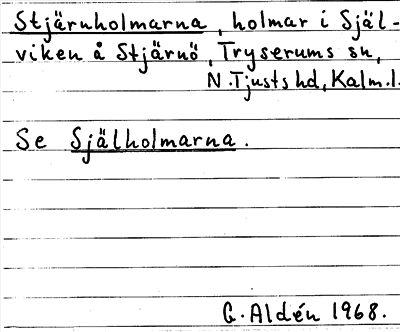 Stjärnholmarna, holmar i Själ-
viken å Stjärnö, Tryserums sn,
N. Tjusts hd, Kalm. l.
Se Själholmarna.
G. Aldén 1968.